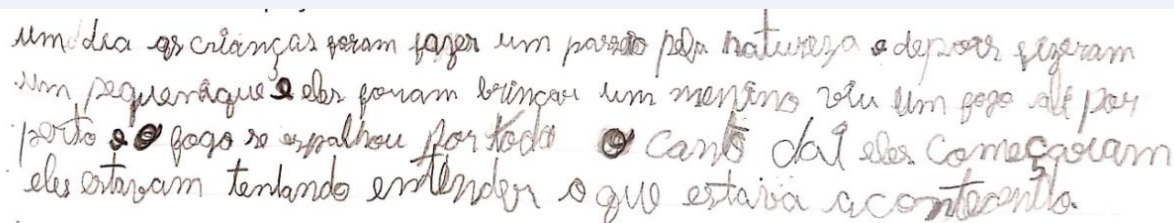 um dia as crianças foram fazer um passeio pela natureza e depois fizeram
um pequenique e eles foram brincar um menino viu um fogo ali por
perto e o fogo se espalhou por todo o canto daí eles começaram
eles estavam tentando entender o que estava acontecendo.